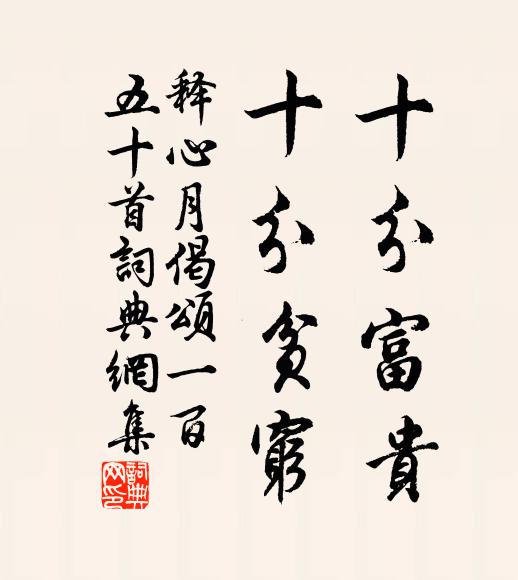 十分富貴
十分貧窮
释心月偈頌一百
五十首詞典網集
詞典网印